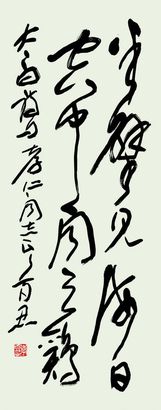 半壁见海日
空中闻天鷄
太白詩句 孝仁同志正之